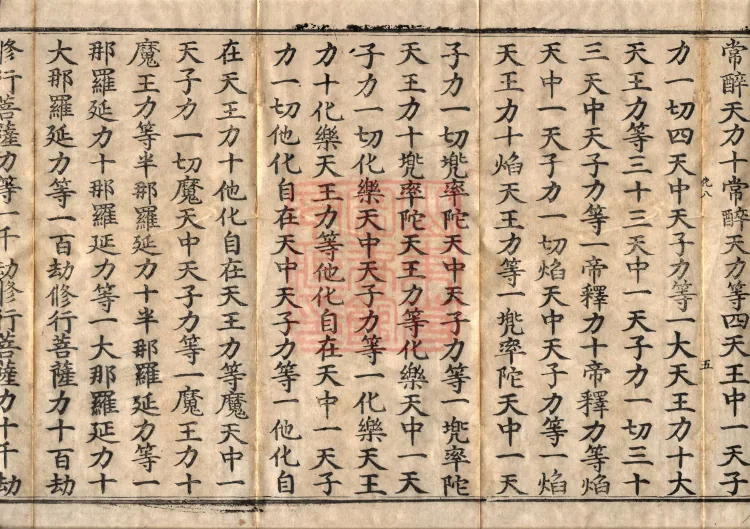 常醉天力十常醉天力等四天王中一天子
力一切四天中天子力等一大天王力十大
八 五
天王力等三十三天中一天子力一切三十
三天中天子力等一帝釋力十帝釋力等焰
天中一天子力一切焰天中天子力等一焰
天王力十焰天王力等一兠率陀天中一天
子力一切兠率陀天中天子力等一兠率陀
天王力十兠率陀天王力等化樂天中一天
子力一切化樂天中天子力等一化樂天王
力十化樂天王力等他化自在天中一天子
力一切他化自在天中天子力等一他化自
在天王力十他化自在天王力等魔天中一
天子力一切魔天中天子力等一魔王力十
魔王力等半那羅延力十半那羅延力等一
那羅延力十那羅延力等一大那羅延力十
大那羅延力等一百劫修行菩薩力十百劫
修行菩薩力等一千劫修行菩薩力十千劫